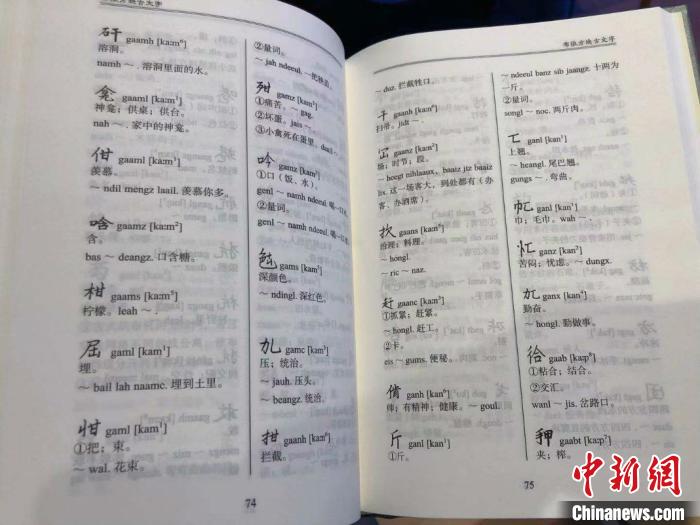 方块古文字
gaamh [ka:m⁶]
溶洞。
namh ～. 溶洞里面的水。
龛 gaaml [ka:m¹]
神龛；供桌；供台。
nah ～. 家中的神龛。
佄 gaaml [ka:m¹]
羡慕。
～ ndil mengz laail. 羡慕你多。
唅 gaamz [ka:m²]
含。
bas ～ deangz. 口含糖。
柑 gaams [ka:m⁵]
柠檬。leah ～ .
屈 gaml [kam¹]
埋。
～ bail lah naamc. 埋到土里。
gaml [kam¹]
①把；束。
～ wal. 花束。
74
②量词。
～ jah ndeeul. 一把
gamz [kam²]
①痛苦。～ gag.
②坏蛋。jais ～ .
③小禽死在蛋里。
吟 gamz [kam²]
①口（饭、水）。
genl ～ namh ndeeul 喝一口
②量词。
genl ～ namh ndeeul. 喝一口
gams [kam⁵]
深颜色。
～ ndingl. 深红色。
gamc [kam³]
压；统治。
～ jauh. 压头。
～ beangz. 统治。
拑 gaanh [ka:n⁶]
拦截。
布依方块古文字
～ duz. 拦截牲口。
干 gaanh [ka:n⁶]
扫帚。jidt ～ .
gaanz [ka:n²]
场；时节；段。
～ hegt nihlaaux, baaiz jtz baaiz
lix. 这一场客大，到处都有（办
客、办酒席）。
gaans [ka:n⁵]
治理；料理。
～ hongl
～ ric ～ naz.
赶 gaanc [ka:n³]
①抓紧；赶紧。
～ hongl. 赶工。
②卡。
eis ～ gums. 便秘。
倄 ganh [kan⁶]
帅；有精神；健康。～ goul.
斤 ganl [kan¹]
①斤。
～ ndeeul banz sib jaangz. 十两为
一斤。
②量词。
songl ～ noc. 两斤肉。
ganl [kan¹]
上翘。
～ heangl. 尾巴翘。
gungs ～ . 弯曲。
ganl [kan¹]
巾；毛巾。wah ～ .
ganz [kan²]
苦闷；忧虑。～ dungx.
ganx [kan⁴]
勤奋。
～ hongl. 勤做事。
gaab [ka:p⁸]
①粘合；结合。
②交汇。
wanl ～ jis. 岔路口。
gaabt [ka:p⁷]
夹；榨。
75
中新网
Chinanews.com